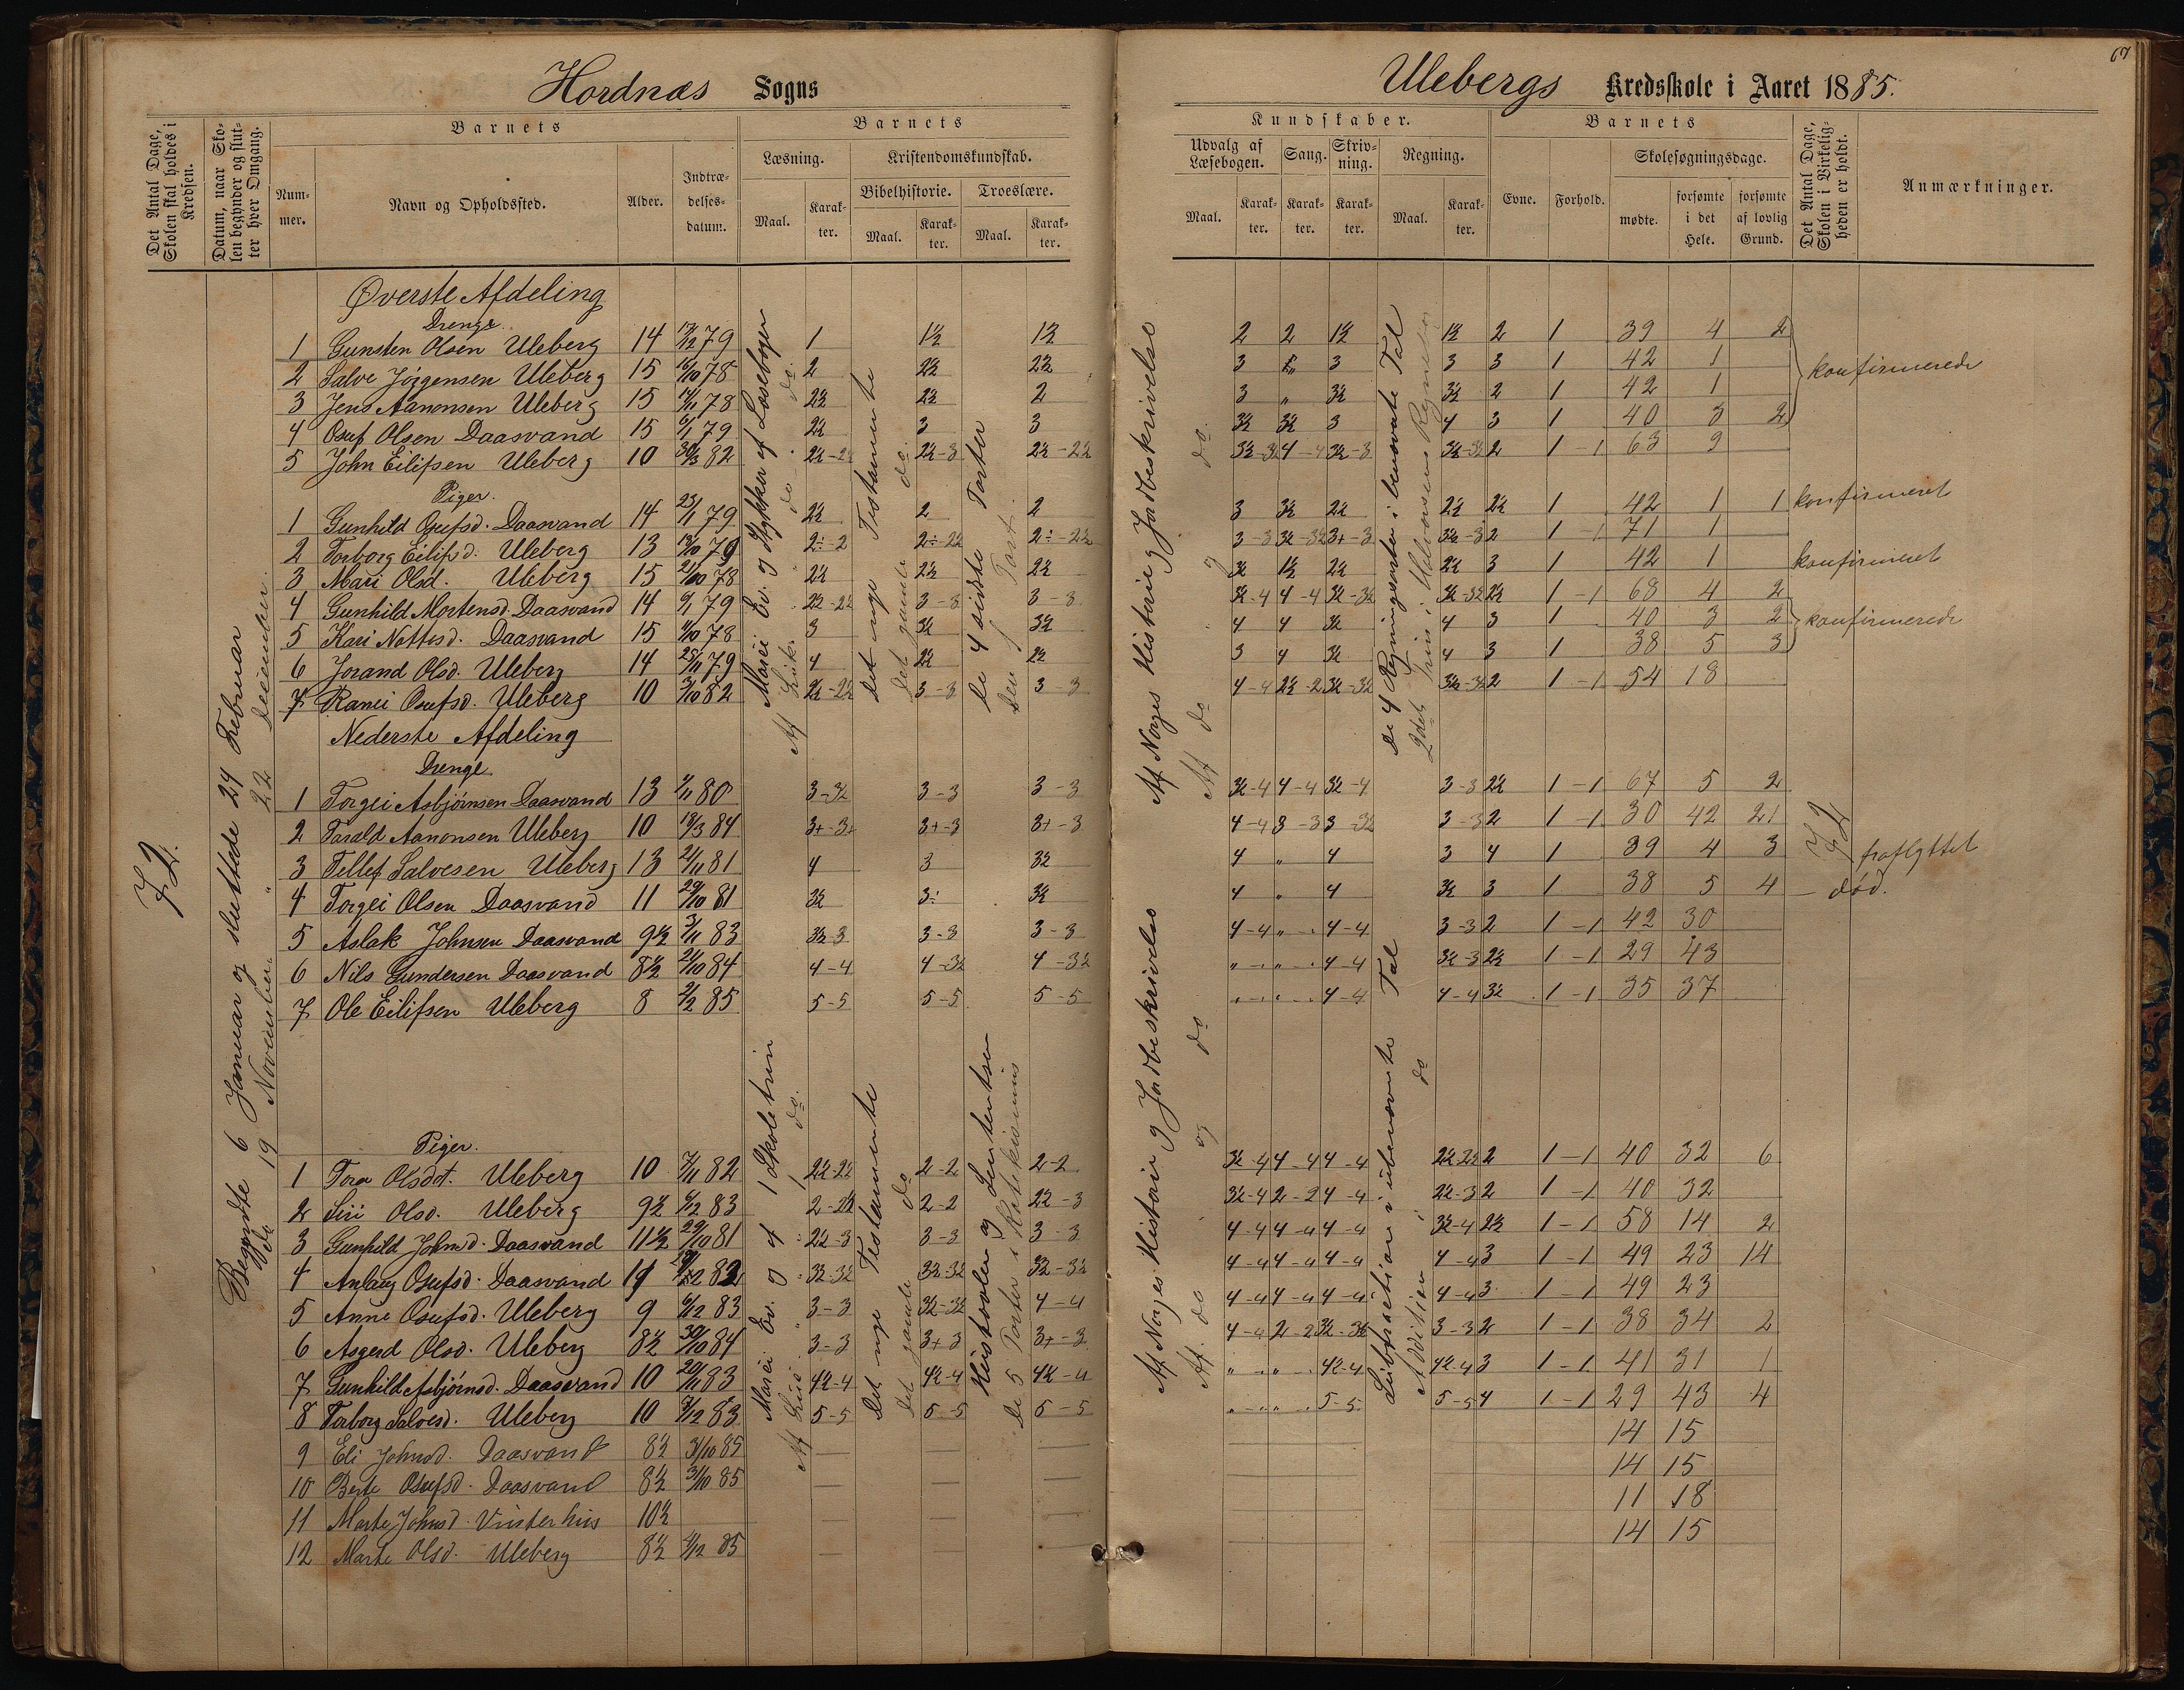 67
Hordnæs Sogns
Ulebergs Kredsskole i Aaret 1885.
Det Antal Dage, Skolen skal holdes i Kredsen.
Datum, naar Skolen begynder og slutter hver Omgang.
Barnets
Nummer.
Navn og Opholdssted.
Alder.
Indtrædelsesdatum.
Barnets
Læsning.
Maal.
Karakter.
Kristendomskundskab.
Bibelhistorie.
Maal.
Karakter.
Troeslære.
Maal.
Karakter.
Kundskaber.
Udvalg af Læsebogen.
Maal.
Karakter.
Sang.
Karakter.
Skrivning.
Karakter.
Regning.
Maal.
Karakter.
Barnets
Evne.
Forhold.
Skolesøgningsdage.
mødte.
forsømte i det Hele.
forsømte af lovlig Grund.
Det Antal Dage, Skolen i Virkeligheden er holdt.
Anmærkninger.
72.
Begyndte 6 Januar og sluttede 24 Februar
do 19 November " 22 December.
Øverste Afdeling
Drenge.
1 Gunsten Olsen Uleberg 14 79 1 1½ 1½ 2 2 1½ 1½ 2 1 39 4 2
2 Salve Jørgensen Uleberg 15 16/10 78 2 2½ 2½ 3 3 3 3 1 42 1
3 Jens Aanonsen Uleberg 15 78 2½ 2½ 2 3 " 3½ 3½ 2 1 42 1
4 Osuf Olsen Daasvand 15 79 2½ 3 3 3½ 3½ 3 4 3 1 40 3 2
konfirmerede
5 John Eilifsen Uleberg 10 30/3 82 2½-2½ 2½-3 2½-2½ 3½-3½ 4-4 3½-3 3½-3½ 2 1-1 63 9
Piger.
1 Gunhild Osufsd. Daasvand 14 23/1 79 2½ 2 2 3 3½ 2½ 2½ 2½ 1 42 1 1 konfirmeret
2 Torborg Eilifsd. Uleberg 13 79 2÷-2 2÷-2½ 2÷-2½ 3-3 3½-3½ 3+-3 3½-3 2 1-1 71 1
3 Mari Olsd. Uleberg 15 21/10 78 2½ 2½ 2½ 3½ 1½ 2½ 2½ 3 1 42 1 konfirmeret
4 Gunhild Mortensd. Daasvand 14 79 2½-2½ 3-3 3-3 3½-4 4-4 3½-3½ 3½-3½ 2½ 1-1 68 4 2
5 Kari Nottesd. Daasvand 15 78 3 3½ 3½ 4 4 3½ 4 3 1 40 3 2
6 Jorand Olsd. Uleberg 14 25/11 79 4 2½ 2½ 3 4 3½ 4 3 1 38 5 3
konfirmerede
7 Ranei Osufsd. Uleberg 10 82 2½-2½ 3-3 3-3 4-4 2½-2 3½-3½ 3½-3½ 2 1-1 54 18
Marei Ev. og Stykker af Læsebogen
Det nye Testamente
Det gamle do.
De 4 sidste Parter
Den Part.
Af Norges Historie og Jordbeskrivelse
Af do og do.
De 4 Regningsarter i benævnte Tal
2det Trin i Halvorsens Regnebog
Nederste Afdeling
Drenge.
1 Torgei Asbjørnsen Daasvand 13 80 3-3½ 3-3 3-3 3½-4 4-4 3½-4 3-3 2½ 1-1 67 5 2
2 Tarald Aanonsen Uleberg 10 18/3 84 3+-3+ 3+-3 3+-3 4-4 3-3 3-3½ 3-3 2 1-1 30 42 21
3 Tellef Salvesen Uleberg 13 21/11 81 4 3 3½ 4 " 4 3 4 1 39 4 3 fraflyttet
4 Torgei Olsen Daasvand 11 29/10 81 3½ 3÷ 3½ 4 " 4 3½ 3 1 38 5 4 — død.
5 Aslak Johnsen Daasvand 9½ 3/11 83 3½-3 3-3 3-3 4-4 " 4-4 3-3 2 1-1 42 30
6 Nils Gundersen Daasvand 8½ 21/10 84 4-4 4-3½ 4-3½ " " 4-4 3½-3 2½ 1-1 29 43
7 Ole Eilifsen Uleberg 8 2/2 85 5-5 5-5 5-5 " " 4-4 4-4 3½ 1-1 35 37
72
Piger.
1 Tora Olsdt. Uleberg 10 7/11 82 2½-2½ 2-2 2-2 3½-4 4-4 4-4 2½-2½ 2 1-1 40 32 6
2 Siri Olsd. Uleberg 9½ 83 2-2½ 2-2 2½-3 3½-4 2-2 4-4 2½-3 2 1-1 40 32
3 Gunhild Johnsd. Daasvand 11½ 29/10 81 2½-3 3-3 3-3 4-4 4-4 4-4 3½-4 2½ 1-1 58 14 2
4 Anlaug Osufsd. Daasvand 11 82 3½-3½ 3½-3½ 3½-3½ 4-4 4-4 4-4 4-4 3 1-1 49 23 14
5 Anne Osufsd. Uleberg 9 6/12 83 3-3 3½-3½ 4-4 4-4 4-4 4-4 4-4 3 1-1 49 23
6 Asgerd Olsd. Uleberg 8½ 30/10 84 3-3 3+-3 3+-3 4-4 2-2 3½-3½ 3-3 2 1-1 38 34 2
7 Gunhild Asbjørnsd. Daasvand 10 20/11 83 4½-4 4½-4 4½-4 " " 4½-4 4½-4 3 1-1 41 31 1
8 Torborg Salvesd. Uleberg 10 7/12 83 5-5 5-5 5-5 " " 5-5 5-5 4 1-1 29 43 4
9 Eli Johnsd. Daasvand 8½ 31/10 85 — — — 14 15
10 Berte Osufsd. Daasvand 8½ 31/10 85 — — — 14 15
11 Marte Johnsd. Vinterhus 10½ — — 11 18
12 Marte Olsd. Uleberg 8½ 4/12 85 — — — 14 15
Marei Ev. og af 1 Skoletrin
Det nye Testamente
Det gamle do
Hustavlen og Sentensen
De 5 Parter i Katekismus
Af Norges Historie og Jordbeskrivelse
Af do og do
Subtraction i ubenævnte Tal
Addition i do